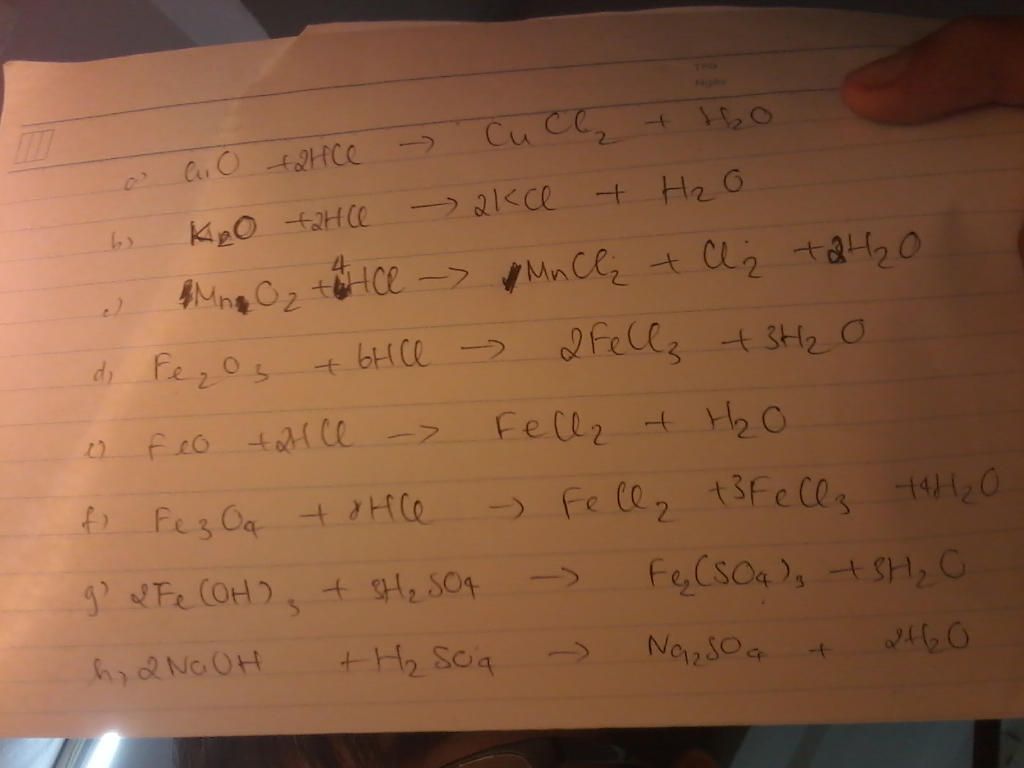 a, CuO + 2HCl → CuCl2 + H2O
b, K2O + 2HCl → 2KCl + H2O
c, MnO2 + 4HCl → MnCl2 + Cl2 + 2H2O
d, Fe2O3 + 6HCl → 2FeCl3 + 3H2O
e, FeO + 2HCl → FeCl2 + H2O
f, Fe3O4 + 8HCl → FeCl2 + 3FeCl3 + 4H2O
g, 2Fe(OH)3 + 3H2SO4 → Fe2(SO4)3 + 3H2O
h, 2NaOH + H2SO4 → Na2SO4 + 2H2O